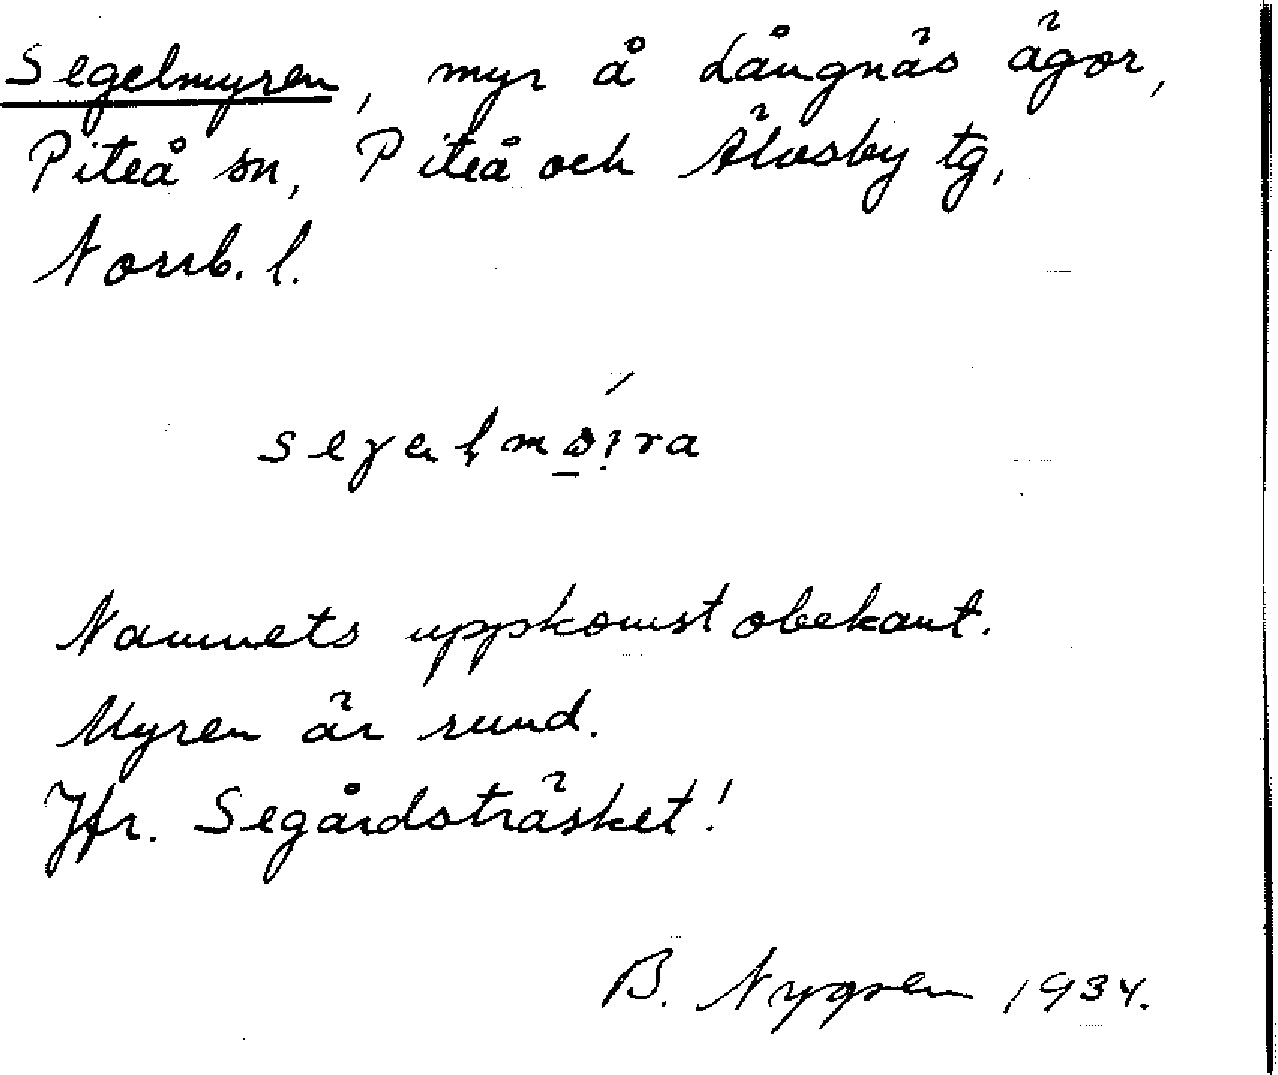 Segelmyren, myr å Långnäs ägor,
Piteå sn, Piteå och Älvsby tg,
Norrb. l.
Namnets uppkomst obekant.
Myren är rund.
Jfr. Segårdsträsket!
B. Nygren 1934.